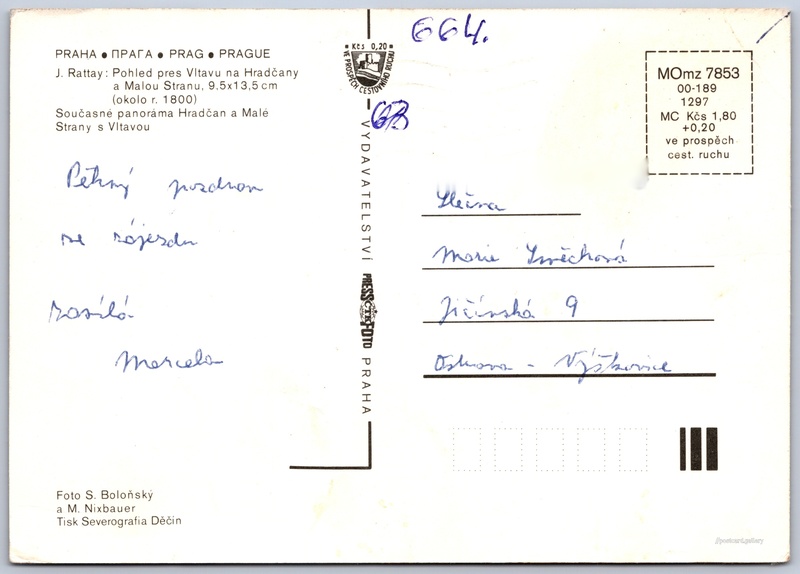 664.
63
PRAHA • ПРАГА • PRAG • PRAGUE
J. Rattay: Pohled pres Vltavu na Hradčany
a Malou Stranu, 9,5x13,5 cm
(okolo r. 1800)
Současné panoráma Hradčan a Malé
Strany s Vltavou
Pěkný pozdrav
ze zájezdu
zasílá
Marcela
Foto S. Boloňský
a M. Nixbauer
Tisk Severografia Děčín
Kčs 0,20
VE PROSPĚCH CESTOVNÍHO RUCHU
VYDAVATELSTVÍ PRESSFOTO PRAHA
ČTK
MOmz 7853
00-189
1297
MC Kčs 1,80
+0,20
ve prospěch
cest. ruchu
Slečna
Marie Směchová
Jičínská 9
Ostrava - Výškovice
postcard.gallery